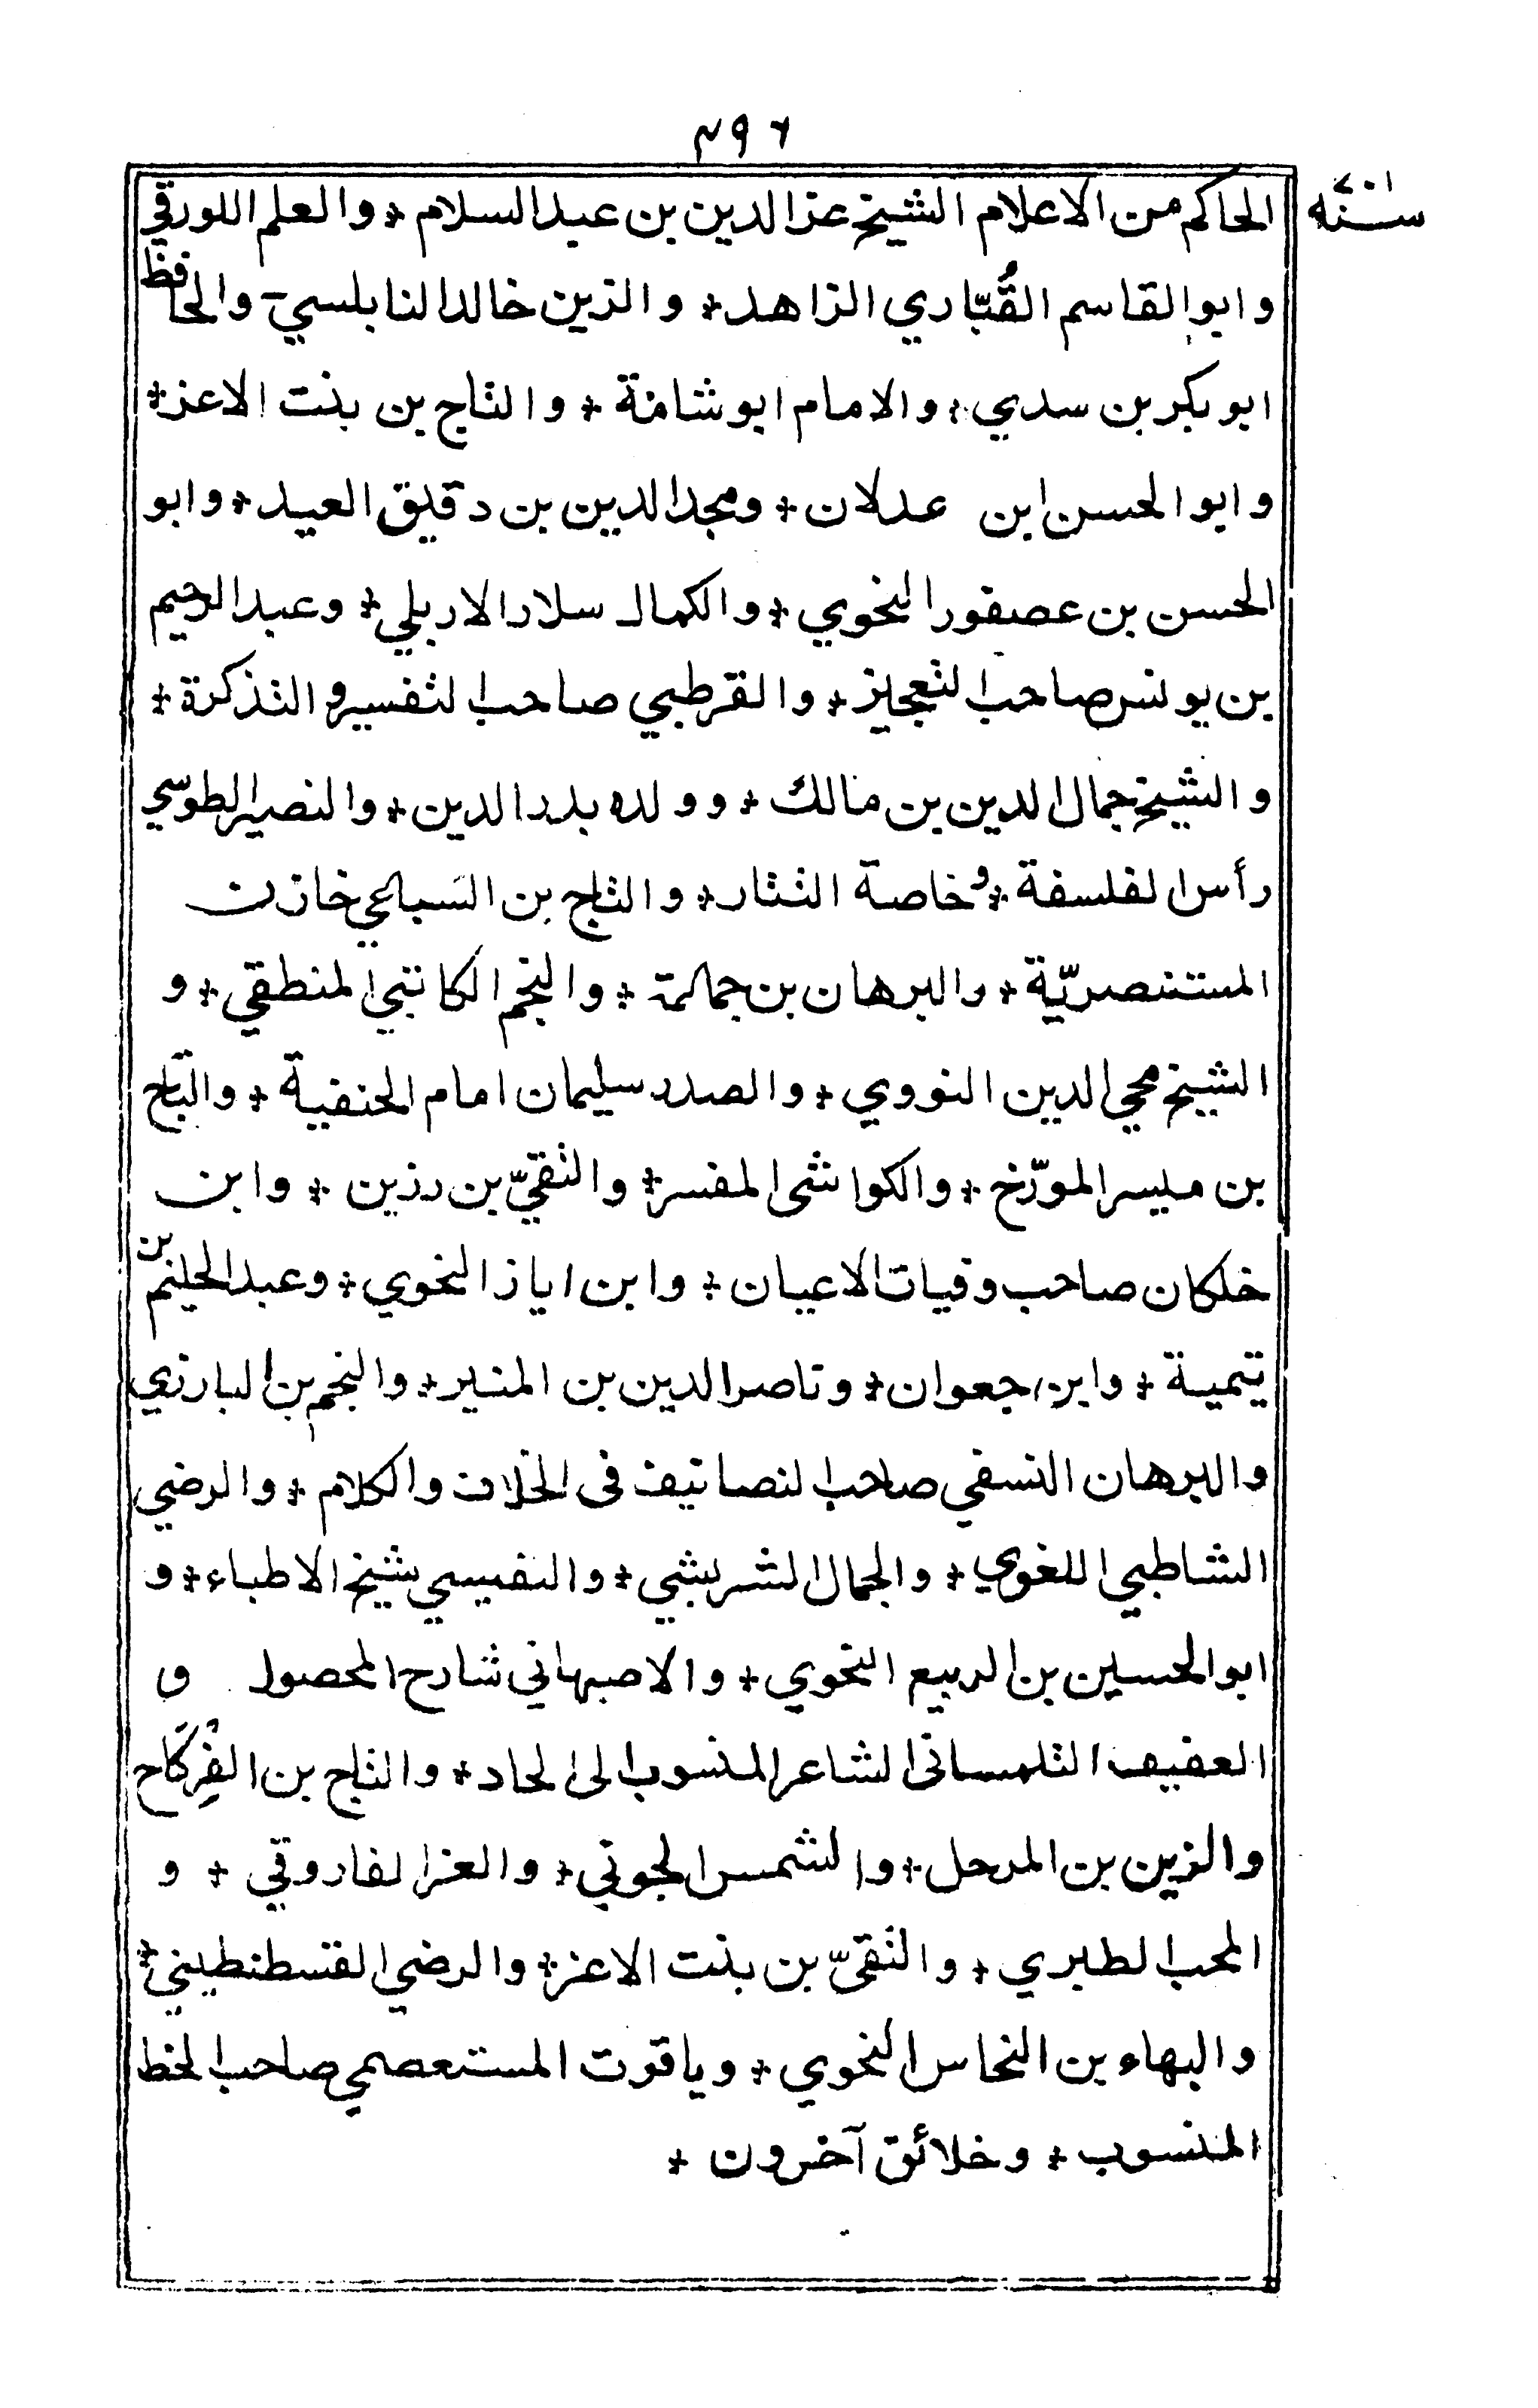 ٤٩٦
سنة ٧٠١
الحاكم من الاعلام الشيخ عز الدين بن عبد السلام * والعلم اللورقي
وابو القاسم القُبّاري الزاهد * والزين خالد النابلسي - والحافظ
ابو بكر بن سدي * والامام ابو شامة * والتاج بن بنت الاعز *
وابو الحسن ابن عدلان * ومجد الدين بن دقيق العيد * وابو
الحسن بن عصفور النحوي * والكمال سلار الاربلي * وعبد الرحيم
بن يونس صاحب التعجيز * والقرطبي صاحب التفسير و التذكرة *
والشيخ جمال الدين بن مالك * وولده بدر الدين * والنصير الطوسي
رأس الفلسفة * وخاصة التتار * والتاج بن السباعي خازن
المستنصريّة * والبرهان بن جماعة * والنجم الكاتبي المنطقي * و
الشيخ محي الدين النووي * والصدر سليمان امام الحنفية * والتاج
بن ميسر المورّخ * والكواشى المفسر * والتقيّ بن رزين * وابن
خلكان صاحب وفيات الاعيان * وابن اياز النحوي * وعبد الحليم بن
تيمية * وابن جعوان * وناصر الدين بن المنير * والنجم بن البارزي
والبرهان النسفي صاحب التصانيف فى الخلاف والكلام * والرضي
الشاطبي اللغوي * والجمال الشريشي * والنفيسي شيخ الاطباء * و
ابو الحسين بن الربيع النحوي * والاصبهاني شارح المحصول و
العفيف التلمسانى الشاعر المنسوب الى الحاد * والتاج بن الفِرْكَاح
والزين بن المرحل * والشمس الجوني * والعز الفاروقي * و
المحب الطبري * والتقيّ بن بنت الاعز * والرضي القسطنطيني *
والبهاء بن النحاس النحوي * وياقوت المستعصمي صاحب الخط
المنسوب * وخلائق آخرون *